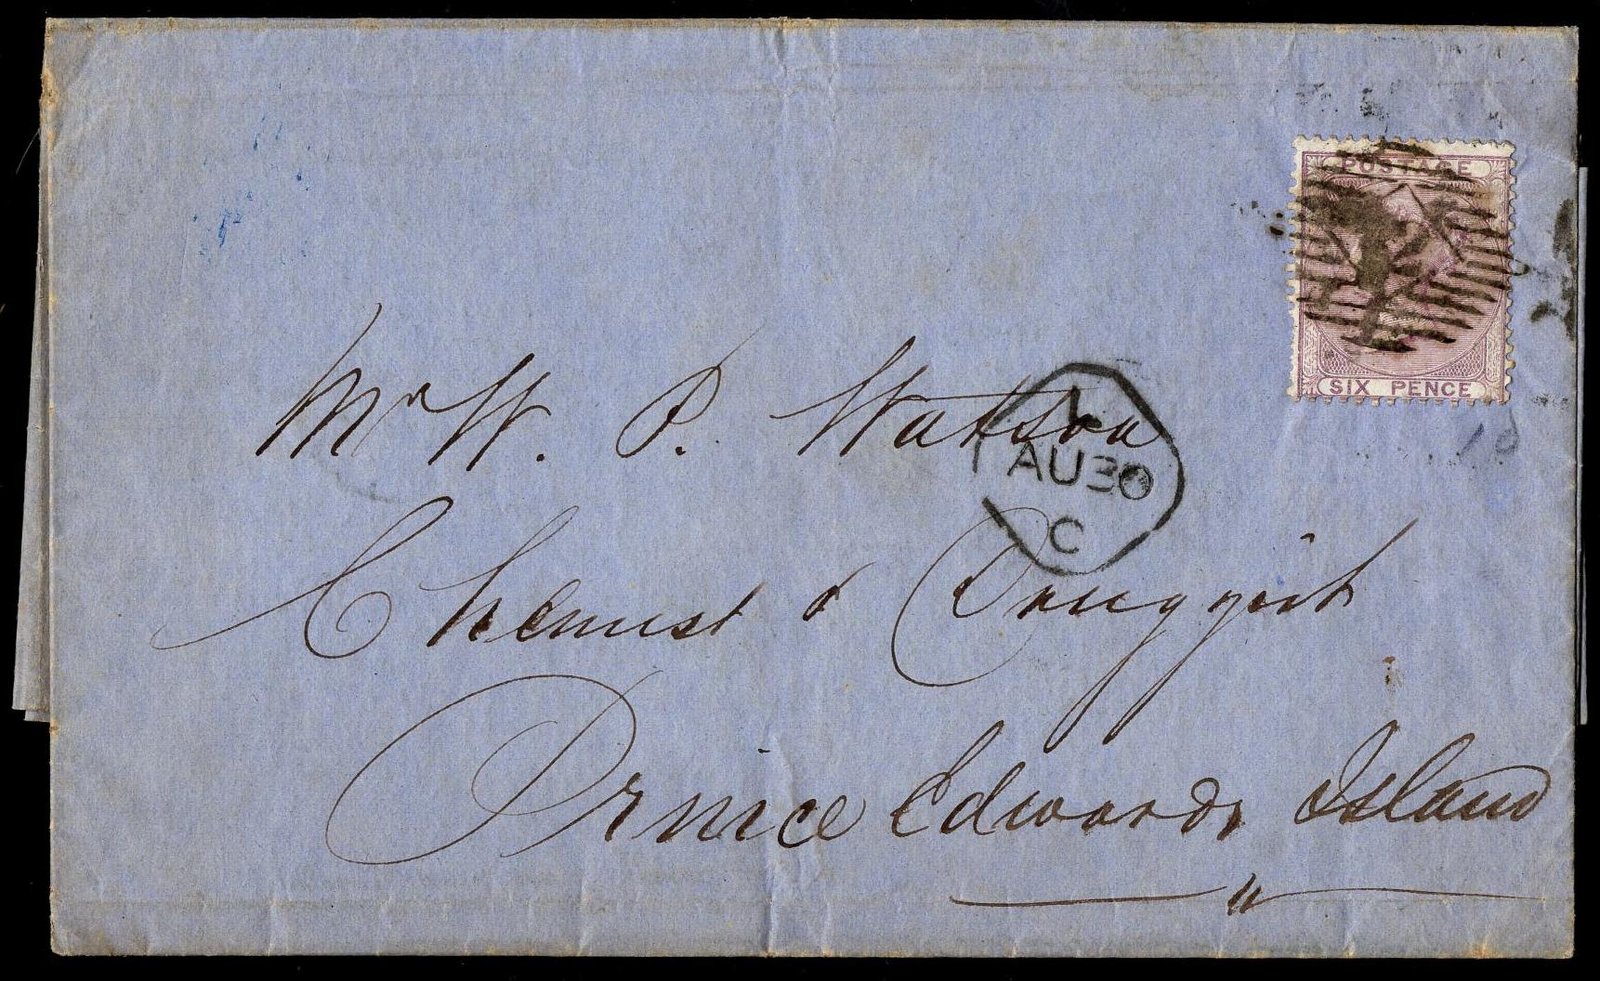 POSTAGE
SIX PENCE
Mr W. P. Watson
L
AU30
C
Chemist & Druggist
Prince Edwards Island